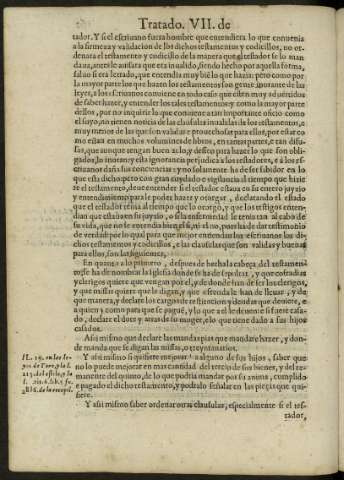 Tratado. VII. de
tador. Y si el escriuano fuera hombre que entendiera lo que conuenia
a la firmeza y validacion de los dichos testamentos y codicillos, no or-
denara el testamento y codicillo de la manera que el testador se lo man-
dara, antes le auisara que era inualido, siendo hecho por aquella forma,
saluo si era letrado, que entendia muy biẽ lo que hazia: pero como por
la mayor parte los que hazen los testamentos son gente ignorante de las
leyes, a los escriuanos conuiene en todo caso que esten muy aduertidos
de saber hazer, y entender los tales testamentos y como la mayor parte
dellos, por no inquirir lo que conuiene a tan importante oficio como
el suyo, no tienen noticia de las clausulas inualidas de los testamentos, a
muy menos de las que son validas e prouechosas para ellos, por estar co
mo estan en muchos volumines de libros, en tantas partes, e tan difu-
sas, que aunque tengan buen zelo, y desseo para hazer lo que son obli-
gados, lo inoran: y esta ignorancia perjudica a los testadores, e a los es-
criuanos daña sus conciencias: y no solamente ha de ser sabidor en lo
que esta dicho, pero con gran cuydado e vigilancia al tiempo que hizie
re el testamento, deue entender si el testador estaua en su entero juyzio
y entendimiento para le poder hazer y otorgar, declarando el estado
que el testador tenia al tiempo que lo otorgo, y que los testigos enten-
dian que estaba en su juyzio, o si la enfermedad le tenia tan al cabo de
su vida, que no se entendia bien, si, ni no, para ha de dar testimonio
de verdad: por lo qual para que mejor entiendan los escriuanos los di-
chos testamentos y codicillos, e las clausulas que son validas y buenas
para ellos, son las siguientes.
En quanto a lo primero, despues de hecha la cabeça del testamen-
to, se ha de nombrar la Iglesia donde se ha de sepultar, y que cofradias
y clerigos quiere que vengan por el, y de donde han de ser los clerigos,
y que missas quiere que se digan, y que ofrenda se han de lleuar, y de
que manera, y declare los cargos de restitucion y deudas que deuiere, e
a quien y como para que se pague, y lo que al le deuen: e si fuere casa-
do, declare el dote y arras de su muger, e lo que tiene dado a sus hijos
casados.
Assi mismo que declare las mandas pias que mandare hazer, y don-
de manda que se digan las missas, e treyntanarios.
Y assi mismo si quisiere mejorar a alguno de sus hijos, saber que
no lo puede mejorar en mas cantidad del tercio de sus bienes, y del re-
maneciente del quinto, de lo que podria mandar por su anima, cumplido
e pagado el dicho testamento, y podralo señalar en las pieças que qui-
siere.
Y assi mismo saber ordenar otras clausulas, especialmente si el tes-
tador,